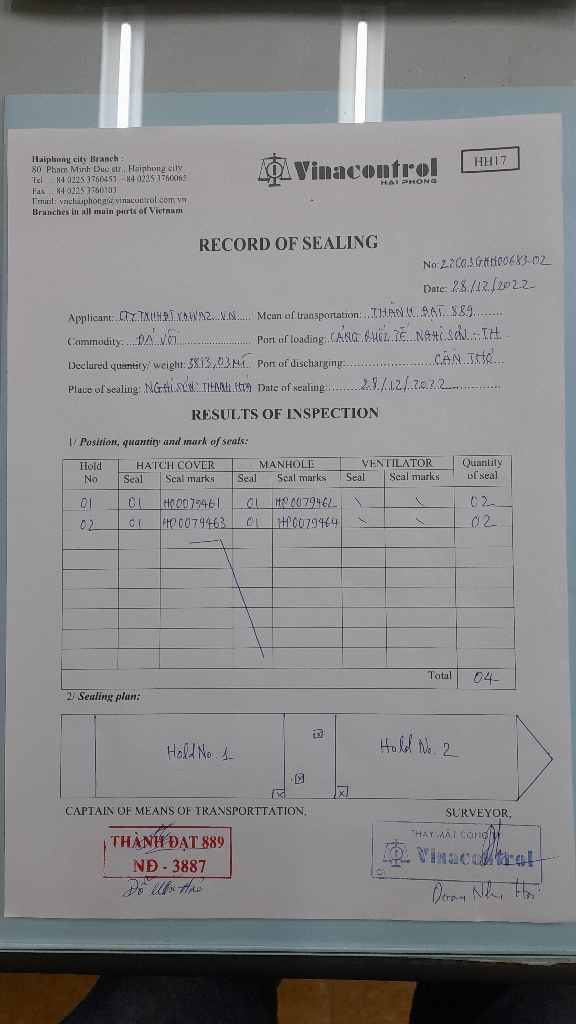 Haiphong city Branch :
80 Pham Minh Duc str., Haiphong city
Tel : 84 0225 3760453 - 84 0225 3760065
Fax : 84 0225 3760103
Email: vnchaiphong@vinacontrol.com.vn
Branches in all main ports of Vietnam
Vinacontrol
HAI PHONG
HH17
RECORD OF SEALING
No:
Date: 28/12/2022
Applicant: Mean of transportation: THÀNH ĐẠT 889
Commodity: ĐÁ VÔI Port of loading: CẢNG QUỐC TẾ NGHI SƠN - TH
Declared quantity/ weight: 3813,03 MT Port of discharging: CẦN THƠ
Place of sealing: NGHI SƠN THANH HÓA Date of sealing: 28/12/2022
RESULTS OF INSPECTION
1/ Position, quantity and mark of seals:
Hold No HATCH COVER MANHOLE VENTILATOR Quantity of seal
Seal Seal marks Seal Seal marks Seal Seal marks
01 01 HP0079461 01 HP0079462 \ \ 02
02 01 HP0079463 01 HP0079464 \ \ 02
Total 04
2/ Sealing plan:
Hold No. 1 Hold No. 2
CAPTAIN OF MEANS OF TRANSPORTTATION, SURVEYOR,
THÀNH ĐẠT 889
NĐ - 3887
THAY MẶT CÔNG TY
Vinacontrol
Đoàn Như